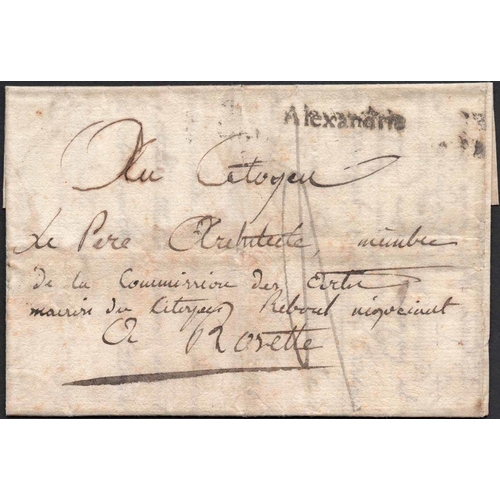 Alexandrie
Au Citoyen
Le Pere Architecte, membre
de la Commission des Arts
maison du Citoyen Reboul négociant
A Rosette